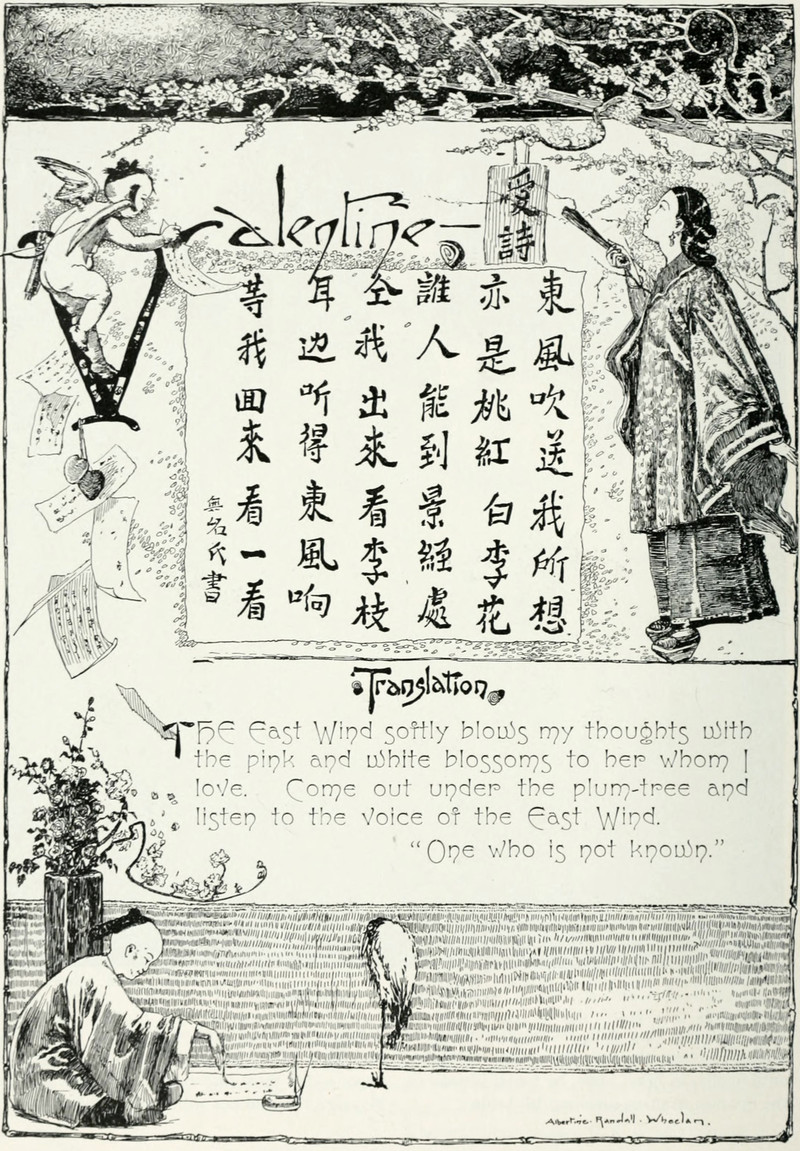 Valentine—
愛詩
東風吹送我所想
亦是桃紅白李花
誰人能到景處
仝我出來看李枝
耳边听得東風响
等我回來看一看
無名氏書
Translation
The East Wind softly blows my thoughts with
the pink and white blossoms to her whom I
love. Come out under the plum-tree and
listen to the voice of the East Wind.
"One who is not known."
Albertine. Randall. Wheelan.